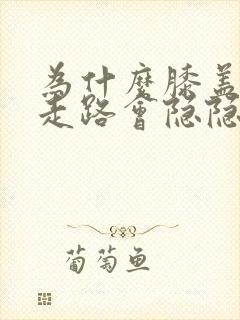 為什麼膝蓋
走路會隐隐
葡萄鱼